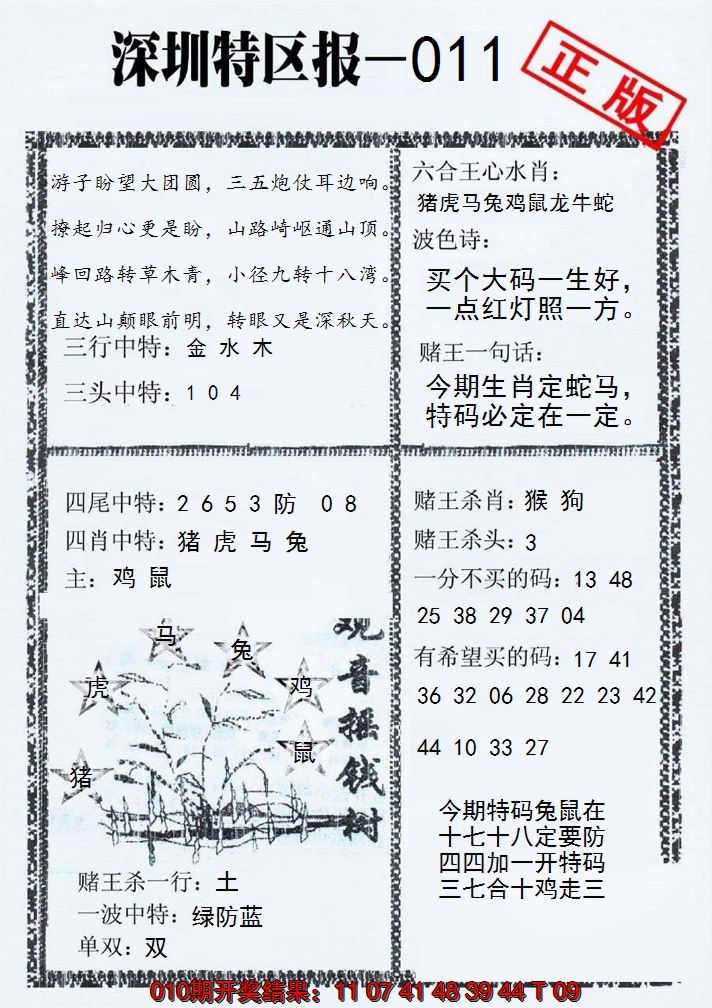 深圳特区报—011
正版
游子盼望大团圆，三五炮仗耳边响。
撩起归心更是盼，山路崎岖通山顶。
峰回路转草木青，小径九转十八湾。
直达山颠眼前明，转眼又是深秋天。
三行中特：金 水 木
三头中特：1 0 4
六合王心水肖：
猪虎马兔鸡鼠龙牛蛇
波色诗：
买个大码一生好，
一点红灯照一方。
赌王一句话：
今期生肖定蛇马，
特码必定在一定。
四尾中特：2 6 5 3 防 0 8
四肖中特：猪 虎 马 兔
主：鸡 鼠
马
兔
虎
鸡
鼠
猪
观音摇钱树
赌王杀一行：土
一波中特：绿防蓝
单双：双
赌王杀肖：猴 狗
赌王杀头：3
一分不买的码：13 48
25 38 29 37 04
有希望买的码：17 41
36 32 06 28 22 23 42
44 10 33 27
今期特码兔鼠在
十七十八定要防
四四加一开特码
三七合十鸡走三
010期开奖结果：11 07 41 48 39 44 T 09